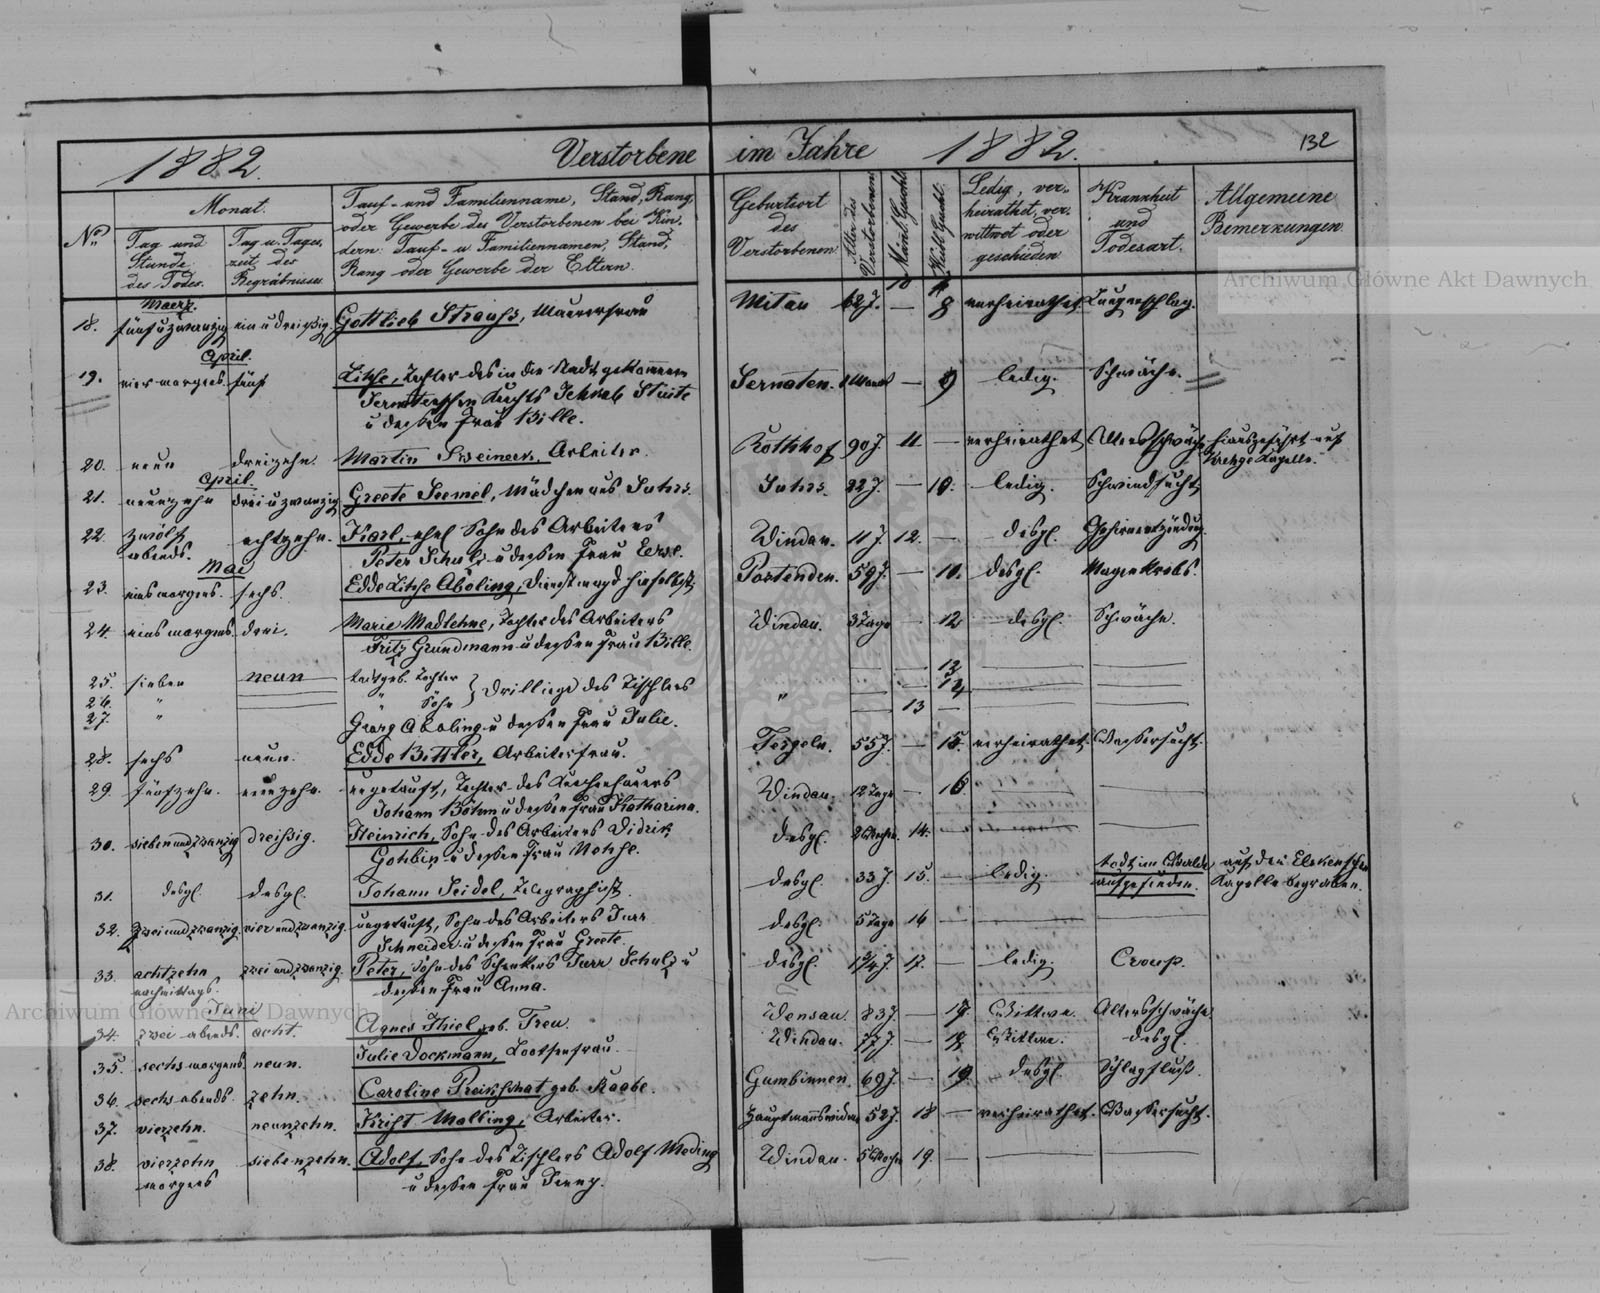 1882. Verstorbene im Jahre 1882. 132
No. Monat. Tauf- und Familienname, Stand, Rang Geburtsort Alter des Verstorbenen Männl. Geschl. Weibl. Geschl. Ledig, ver- Krankheit Allgemeine
Tag und Tag u. Tages- oder Gewerbe des Verstorbenen bei Kin- des heirathet, ver- und Bemerkungen
Stunde zeit des dern: Tauf- u. Familiennamen, Stand, Verstorbenen wittwet oder Todesart.
des Todes. Begräbnisses Rang oder Gewerbe der Eltern. geschieden
Maerz. 10
18. fünf u zwanzig ein u dreißig. Gottlieb Strauss, Maurerfrau Mitau 62 J. — 8 verheirathet
April.
19. vier morgens. fünf Tochter des in die Stadt gekommenen Sernaten. 1 Monat — 9 ledig. Schwäche.
Knechts Jehkab
u dessen Frau Bille.
20. neun dreizehn. Martin Arbeiter. 90 J. 11. — verheirathet Altersschwäche
Kapelle.
April.
21. neunzehn drei u zwanzig Greete Seemel, Mädchen aus 22 J. — 10. ledig. Schwindsucht
22. zwölf achtzehn. Karl, ehel Sohn des Arbeiters Windau. 11 J. 12. — desgl. Gehirnentzündung.
abends. Peter Schulz u dessen Frau
Mai
23. eins morgens. sechs. Edde Lihse Aboling, Dienstmagd hieselbst. 59 J. — 11. desgl. Magenkrebs.
24. eins morgens. drei. Marie Madlehne, Tochter des Arbeiters Windau. 3 Tage — 12 desgl. Schwäche.
Fritz Grundmann u dessen Frau Bille.
25. sieben neun todtgeb. Tochter — — 13 — —
26. " " Söhn } Drillinge des Tischlers " — — 14 — —
27. " — 13 — — —
Georg Aboling u dessen Frau Julie.
28. sechs neun. Edde Bittler, Arbeiterfrau. 55 J. — 15. verheirathet. Wassersucht.
29. fünfzehn. neunzehn. ungetauft, Tochter des Windau. 12 Tage — 16 — —
Johann Böhm u dessen Frau Katharina.
30. sieben und zwanzig dreißig. Heinrich, Sohn des Arbeiters Didrik desgl. 2 Wochen 14. — — —
u dessen Frau
31. desgl. desgl. Johann Seidel, Telegraphist. desgl. 33 J. 15. — ledig. todt im Walde auf der
aufgefunden. Kapelle begraben.
32. zwei und zwanzig. vier und zwanzig. ungetauft, Sohn des Arbeiters Jurr desgl. 5 Tage 16 — — —
Schneider u dessen Frau Greete.
33. achtzehn zwei und zwanzig. Peter, Sohn des Schenkers Jurr Schulz u desgl. 17. — ledig. Croup.
nachmittags. dessen Frau Anna.
Juni
34. zwei abends. acht. Agnes Thiel geb. Treu. Wensau. 83 J. — 17. Wittwe. Altersschwäche
35. sechs morgens neun. Julie Dockmann, Lootsenfrau. Windau. 77 J. — 18 Wittwe. desgl.
36. sechs abends zehn. Caroline Preikschat geb. Raabe. Gumbinnen. 69 J. — 19 desgl. Schlagfluß.
37. vierzehn. neunzehn. Krist Malling, Arbeiter. 52 J. 18 — verheirathet. Wassersucht.
38. vierzehn siebenzehn. Adolf, Sohn des Tischlers Adolf Meding Windau. 5 Wochen 19. — — —
morgens u dessen Frau Jenny.
Archiwum Główne Akt Dawnych
Archiwum Główne Akt Dawnych